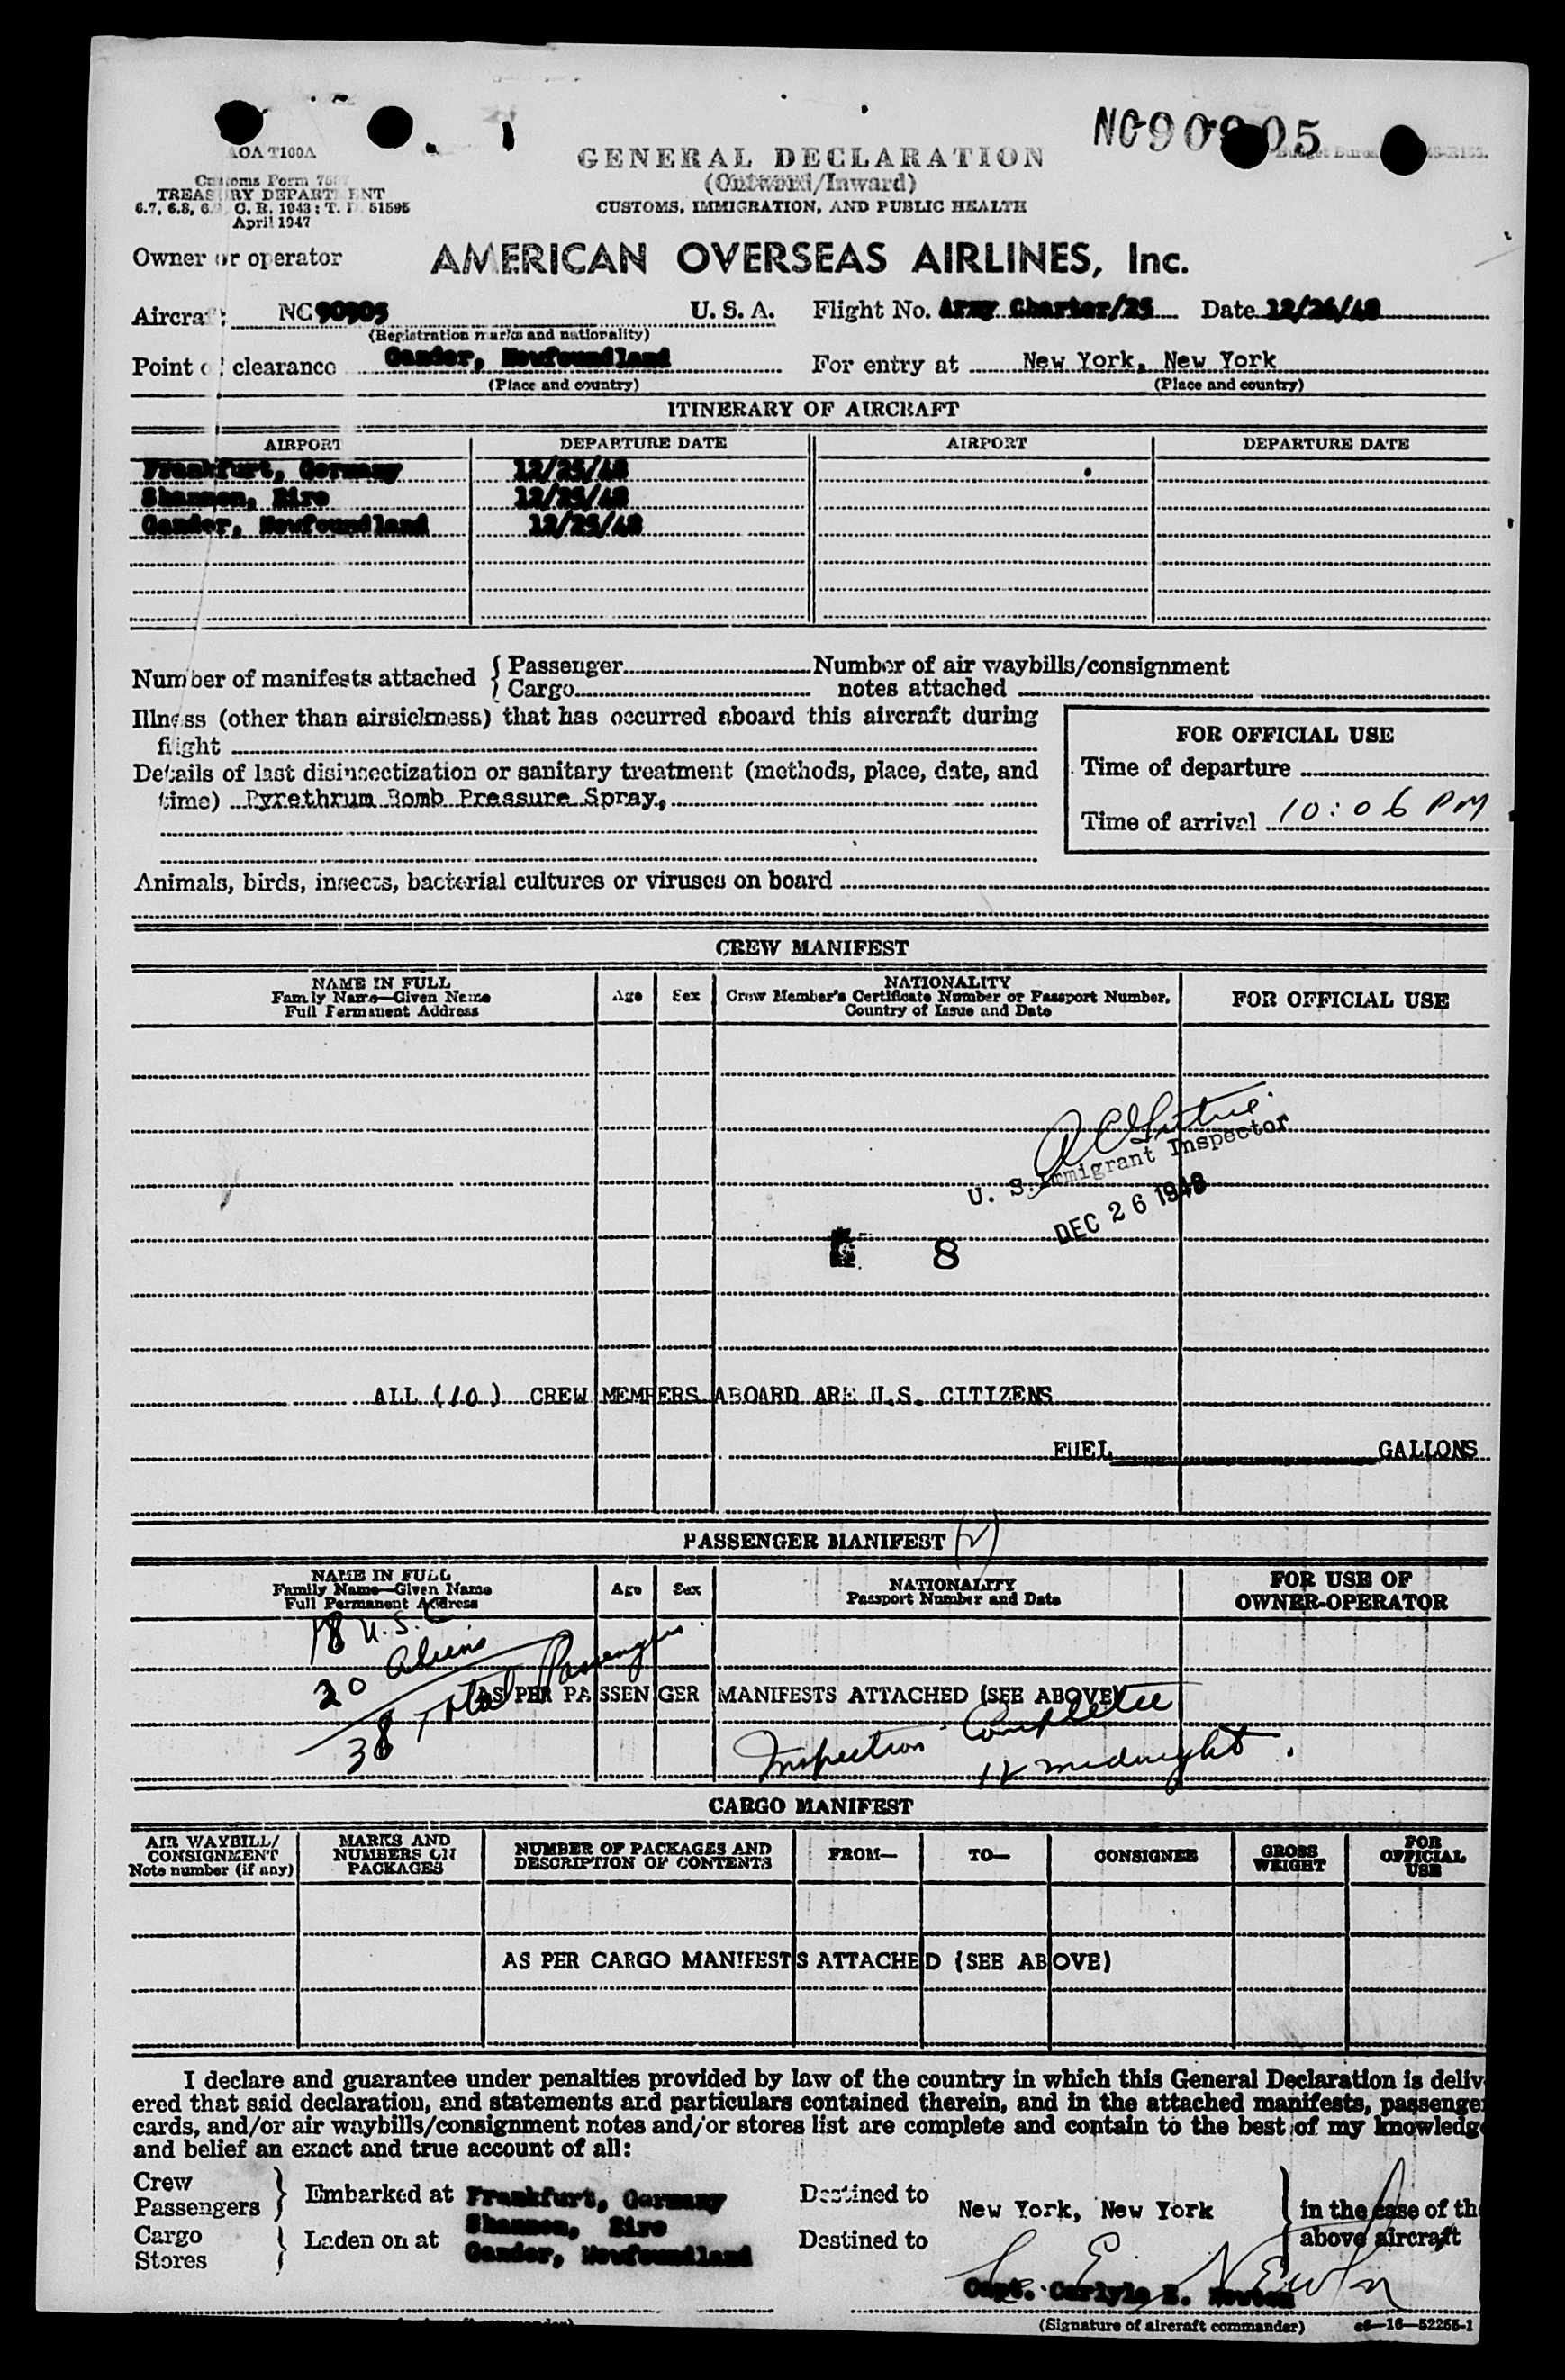 NC90905
AOA T100A
Customs Form 7507
TREASURY DEPARTMENT
6.7, 6.8, 6.9, C. R. 1943; T. D. 51595
April 1947
GENERAL DECLARATION
(Outward/Inward)
CUSTOMS, IMMIGRATION, AND PUBLIC HEALTH
Owner or operator AMERICAN OVERSEAS AIRLINES, Inc.
Aircraft NC90905 U. S. A. Flight No. Army Charter/25 Date 12/26/48
(Registration marks and nationality)
Point of clearance Gander, Newfoundland For entry at New York, New York
(Place and country) (Place and country)
ITINERARY OF AIRCRAFT
AIRPORT DEPARTURE DATE AIRPORT DEPARTURE DATE
Frankfurt, Germany 12/25/48
Shannon, Eire 12/25/48
Gander, Newfoundland 12/25/48
Number of manifests attached { Passenger Number of air waybills/consignment
Cargo notes attached
Illness (other than airsickness) that has occurred aboard this aircraft during
flight
Details of last disinsectization or sanitary treatment (methods, place, date, and
time) Pyrethrum Bomb Pressure Spray,
FOR OFFICIAL USE
Time of departure
Time of arrival 10:06 PM
Animals, birds, insects, bacterial cultures or viruses on board
CREW MANIFEST
NAME IN FULL
Family Name—Given Name
Full Permanent Address
Age
Sex
NATIONALITY
Crew Member's Certificate Number or Passport Number,
Country of Issue and Date
FOR OFFICIAL USE
U. S. Immigrant Inspector
DEC 26 1948
8
ALL (10) CREW MEMBERS ABOARD ARE U.S. CITIZENS
FUEL GALLONS
PASSENGER MANIFEST (2)
NAME IN FULL
Family Name—Given Name
Full Permanent Address
Age
Sex
NATIONALITY
Passport Number and Date
FOR USE OF
OWNER-OPERATOR
18 U.S.C
20 Aliens
38 Total Passengers.
AS PER PASSENGER MANIFESTS ATTACHED (SEE ABOVE)
Inspection Completed
12 midnight.
CARGO MANIFEST
AIR WAYBILL/
CONSIGNMENT
Note number (if any)
MARKS AND
NUMBERS ON
PACKAGES
NUMBER OF PACKAGES AND
DESCRIPTION OF CONTENTS
FROM—
TO—
CONSIGNEE
GROSS
WEIGHT
FOR
OFFICIAL
USE
AS PER CARGO MANIFESTS ATTACHED (SEE ABOVE)
I declare and guarantee under penalties provided by law of the country in which this General Declaration is deliv
ered that said declaration, and statements and particulars contained therein, and in the attached manifests, passenge
cards, and/or air waybills/consignment notes and/or stores list are complete and contain to the best of my knowledg
and belief an exact and true account of all:
Crew
Passengers } Embarked at Frankfurt, Germany Destined to New York, New York } in the case of th
Shannon, Eire
Cargo
Stores } Laden on at Gander, Newfoundland Destined to above aircraft
C. E. Newton
Capt. Carlyle E. Newton
(Signature of aircraft commander) 16—52255-1